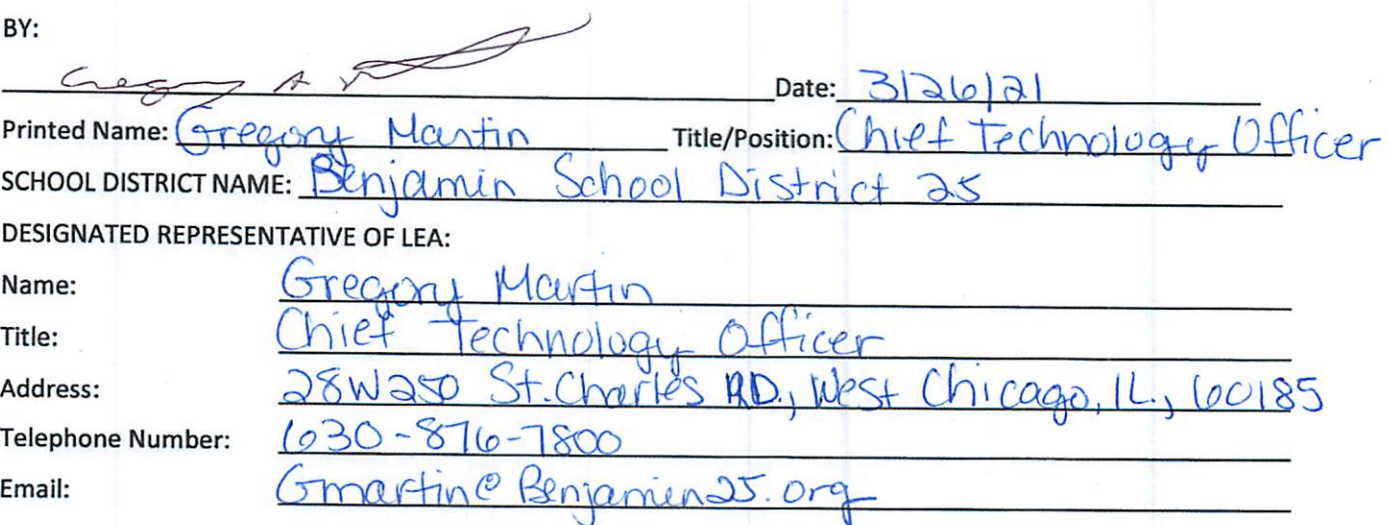 BY:
Gregory A Date: 3/26/21
Printed Name: Gregory Martin Title/Position: Chief Technology Officer
SCHOOL DISTRICT NAME: Benjamin School District 25
DESIGNATED REPRESENTATIVE OF LEA:
Name: Gregory Martin
Title: Chief Technology Officer
Address: 28W250 St. Charles RD., West Chicago, IL., 60185
Telephone Number: 630-876-7800
Email: Gmartin@Benjamin25.org